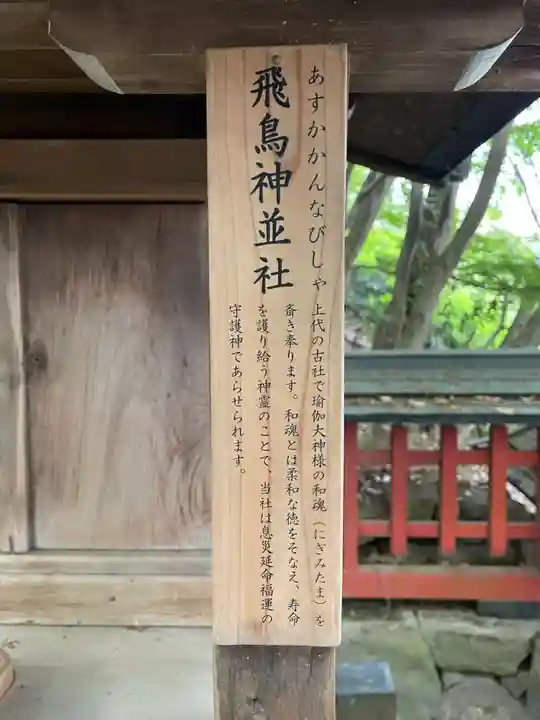 あすかかんなびしゃ
飛鳥神並社
上代の古社で瑜伽大神様の和魂（にぎみたま）を
斎き奉ります。和魂とは柔和な徳をそなえ、寿命
を護り給う神霊のことで、当社は息災延命福運の
守護神であらせられます。